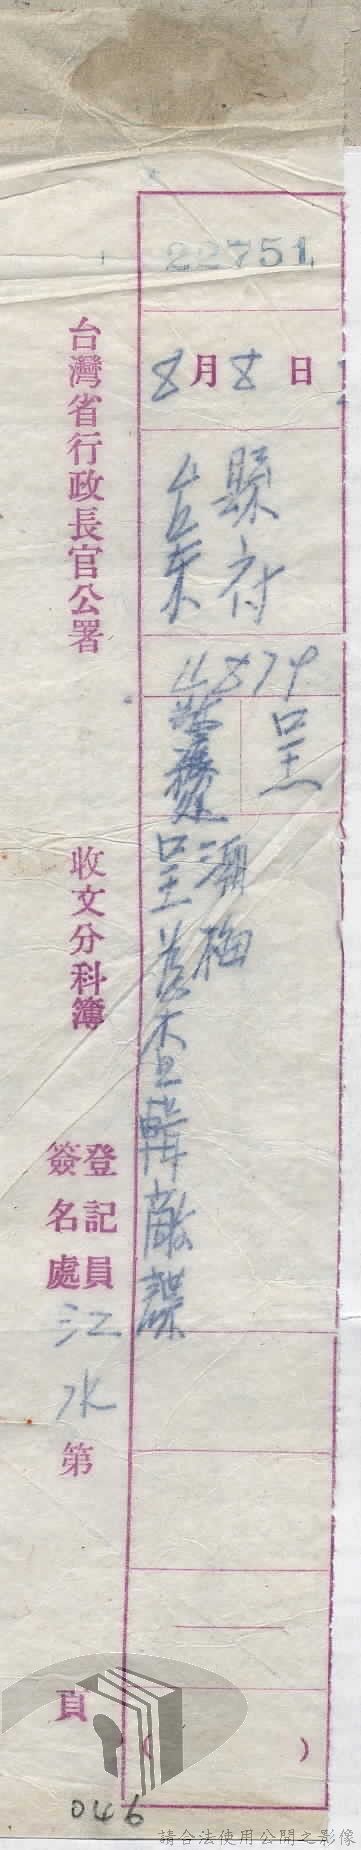 22751
8月8日
台東
縣府
呈
警務處
呈
查韓敵諜
台灣省行政長官公署
收文分科簿
登記員
簽名處
江水
第
頁
( )
0746
請合法使用公開之影像